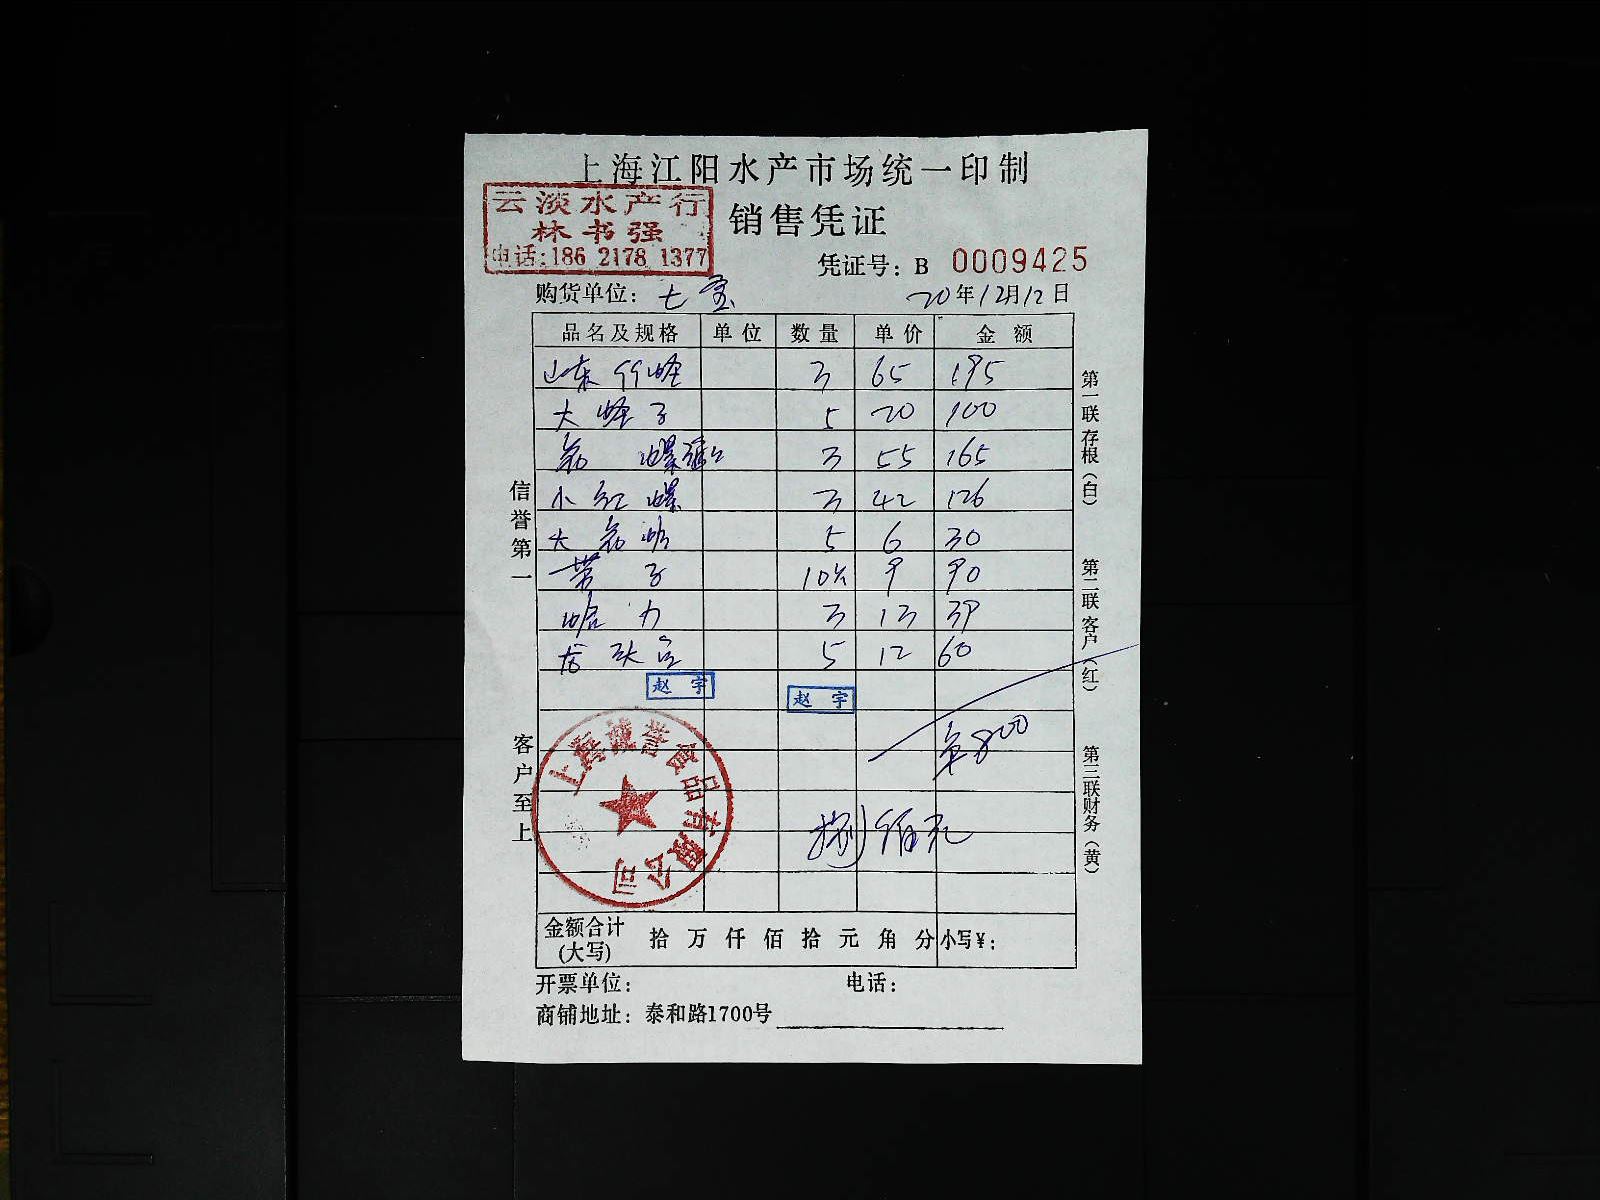 上海江阳水产市场统一印制
云淡水产行
林书强
电话:186 2178 1377
销售凭证
凭证号: B 0009425
购货单位: 七宝
20年12月12日
品名及规格 单位 数量 单价 金额
山东竹蛏 3 65 195
大蛏子 5 20 100
螺 3 55 165
小红螺 3 42 126
大 蛤 5 6 30
带子 10 9 90
哈力 3 13 39
5 12 60
赵宇 赵宇
800
捌佰元
上海诚誉食品有限公司
金额合计(大写) 拾 万 仟 佰 拾 元 角 分 小写¥:
开票单位: 电话:
商铺地址: 泰和路1700号
信誉第一
客户至上
第一联存根(白)
第二联客户(红)
第三联财务(黄)